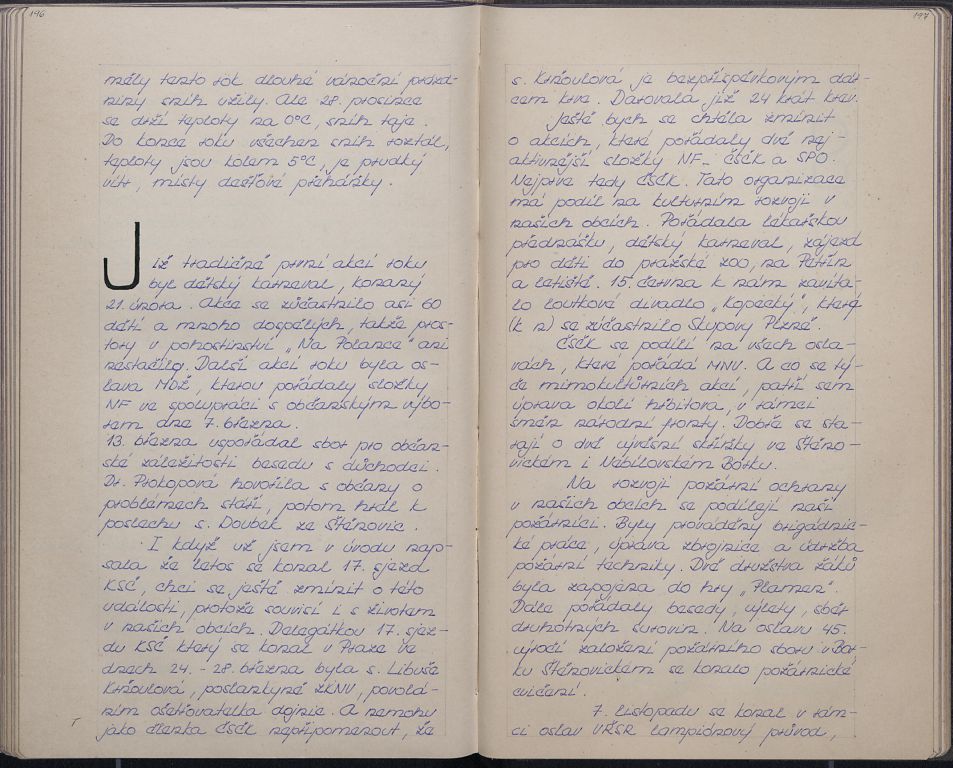 196
měly tento rok dlouhé vánoční prázd-
niny sníh užily. Ale 28. prosince
se drží teploty na 0°C, sníh taje.
Do konce roku všechen sníh roztál,
teploty jsou kolem 5°C, je prudký
vítr, místy dešťové přeháňky.
Již tradičně první akcí roku
byl dětský karneval, konaný
21. února. Akce se zúčastnilo asi 60
dětí a mnoho dospělých, takže pros-
tory v pohostinství „Na Polance" ani
nestačily. Další akcí roku byla os-
lava MDŽ, kterou pořádaly složky
NF ve spolupráci s občanským výbo-
rem dne 7. března.
13. března uspořádal sbor pro občan-
ské záležitosti besedu s důchodci.
Dr. Prokopová hovořila s občany o
problémech stáří, potom hrál k
poslechu s. Doubek ze Štěnovic.
I když už jsem v úvodu nap-
sala že letos se konal 17. sjezd
KSČ, chci se ještě zmínit o této
události, protože souvisí i s životem
v našich obcích. Delegátkou 17. sjez-
du KSČ který se konal v Praze ve
dnech 24. - 28. března byla s. Libuše
Kržoulová, poslankyně ZKNV, povolá-
ním ošetřovatelka dojnic. A nemohu
jako členka ČSČK nepřipomenout, že
197
s. Kržoulová je bezpříspěvkovým dár-
cem krve. Darovala již 24 krát krev.
Ještě bych se chtěla zmínit
o akcích, které pořádaly dvě nej-
aktivnější složky NF - ČSČK a SPO.
Nejprve tedy ČSČK. Tato organizace
má podíl na kulturním rozvoji v
našich obcích. Pořádala lékařskou
přednášku, dětský karneval, zájezd
pro děti do pražské zoo, na Petřín
a letiště. 15. června k nám zavíta-
lo loutkové divadlo „Kopecký", které
(k n) se zúčastnilo Skupovy Plzně.
ČSČK se podílí na všech osla-
vách, které pořádá MNV. A co se tý-
če mimokultůrních akcí, patří sem
úprava okolí hřbitova, v rámci
směn národní fronty. Dobře se sta-
rají o dvě vývěsní skříňky ve Štěno-
vickém i Nebílovském Borku.
Na rozvoji požární ochrany
v našich obcích se podílejí naši
požárníci. Byly prováděny brigádnic-
ké práce, úprava zbrojnice a údržba
požární techniky. Dvě družstva žáků
byla zapojena do hry „Plamen".
Dále pořádaly besedy, výlety, sběr
druhotných surovin. Na oslavu 45.
výročí založení požárního sboru v Bor-
ku Štěnovickém se konalo požárnické
cvičení.
7. listopadu se konal v rám-
ci oslav VŘSR lampiónový průvod,